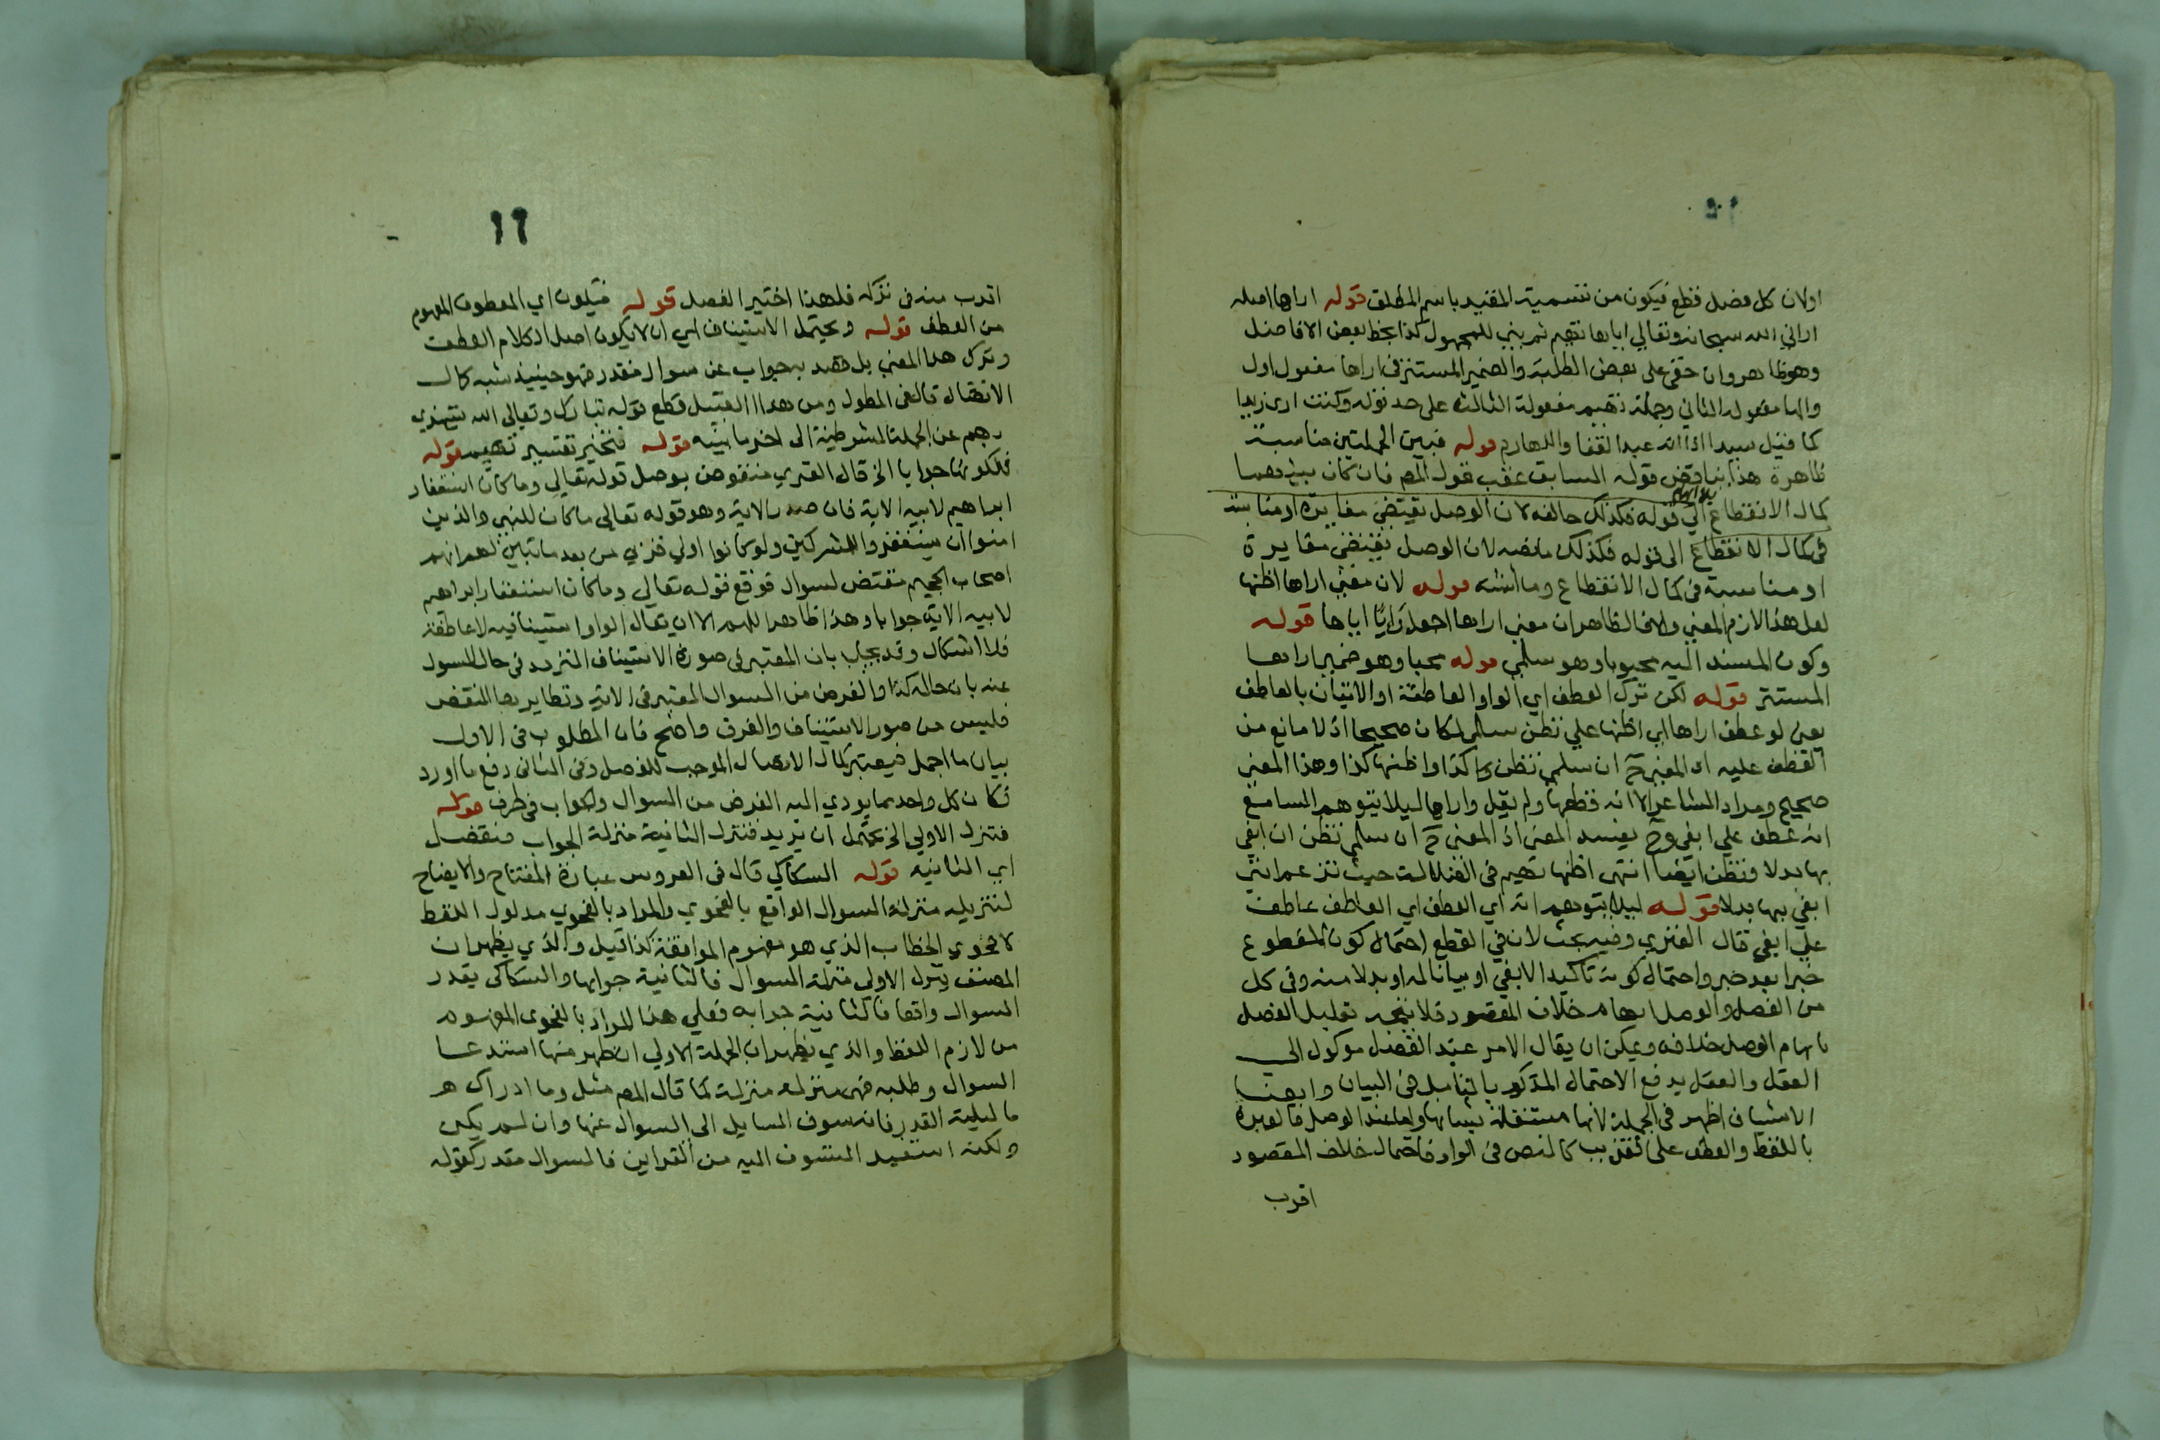 اولان كل فصل قطع فيكون من تسمية المقيد باسم المطلق قوله اراها اصله
اراني الله سبحانه وتعالي اياها تهيم ثم بني للمجهول كذا بخط بعض الافاضل
وهو ظاهر وان خفي على بعض الطلبة والضمير المستتر في اراها مفعول اول
والها مفعوله الثاني وجملة تهيم مفعوله الثالث على حد قوله وكنت اري زيدا
كما قيل سيدا اذا انه عبد القفا واللهازم قوله فبين الجملتين مناسبة
ظاهرة هذا يناقض قوله السابق عقب قول المصم فان كان بينهما
كمال الانقطاع بلا ايهام الي قوله فكذلك حالفه لان الوصل يقتضي مغايرة ومناسبة
في كمال الانقطاع الى قوله فكذلك ما نصه لان الوصل يقتضي مغايرة
او مناسبة في كمال الانقطاع وما اشبه قوله لان معني اراها اظنها
لعل هذا لازم المعني والا فالظاهر ان معني اراها اجعل رائيا اياها قوله
وكون المسند اليه محبوبا وهو سلمي قوله محبا وهو ضمير اراها
المستتر قوله لكن ترك العطف اي الواو العاطفة او الاتيان بالعاطف
يعني لو عطف اراها اي اظنها علي تظن سلمي لكان صحيحا اذ لا مانع من
العطف عليه اذ المعني ح ان سلمي تظن كذا واظنها كذا وهذا المعني
صحيح ومراد الشاعر الا انه قطعها ولم يقل واراها ليلا يتوهم السامع
انه عطف علي ابغي وح يفسد المعني اذ المعني ح ان سلمي تظن ان ابغي
بها بدلا وتظن ايضا انني اظنها تهيم في الضلالة حيث تزعم انني
ابغي بها بدلا قوله ليلا يتوهم انه اي العطف اي العاطف عاطف
علي ابغي قال الفنري وفيه بحث لان في القطع احتمال كون المقطوع
خبرا بعد خبر واحتمال كونه تاكيدا لابغي او بيانا له او بدلا منه وفي كل
من الفصل والوصل ايهام خلاف المقصود فلا يتجه تعليل الفصل
بايهام الوصل خلافه ويمكن ان يقال الامر عند الفصل موكول الى
العقل والعقل يدفع الاحتمال المذكور بالتامل في البيان وايضا
الاستيناف اظهر في الجملة لانها مستقلة بشانها واما عند الوصل فالعبرة
باللفظ والعطف على القريب كالنص في الواو فاحتمال خلاف المقصود
اقرب
١٦
اقرب منه في تركه فلهذا اختير الفصل قوله فيكون اي المعطوف المفهوم
من العطف قوله ويحتمل الاستيناف اي ان لا يكون اصل الكلام العطف
وترك هذا المعني بل قصد به جواب عن سوال مقدر فهو حينيذ شبه كمال
الاتصال قال في المطول ومن هذا القبيل قطع قوله تبارك وتعالى الله يستهزي
بهم عن الجملة الشرطية الى اخر ما بينه قوله فتخير تفسير تهيم قوله
فلكونها جوابا الخ قال الفنري منقوض بوصل قوله تعالى وما كان استغفار
ابراهيم لابيه الاية فان صدر الاية وهو قوله تعالى ما كان للنبي والذين
امنوا ان يستغفروا للمشركين ولو كانوا اولي قربي من بعد ما تبين لهم انهم
اصحاب الجحيم مقتض لسوال فوقع قوله تعالي وما كان استغفار ابراهيم
لابيه الاية جوابا وهذا ظاهر اللهم الا ان يقال الواو استينافيه لا عاطفة
فلا اشكال وقد يجاب بان المعتبر في صورة الاستيناف التردد في حال المسول
عنه بان حاله كذا والغرض من السوال المعتبر في الاية ونظايرها النقض
فليس من صور الاستيناف والفرق واضح فان المطلوب في الاول
بيان ما اجمل فيعتبر كمال الاتصال الموجب للفصل وفي الثاني دفع ما اورد
فكان كل واحد مما يودي اليه الغرض من السوال والجواب في طرف قوله
فتنزل الاولي الخ يحتمل ان يريد فتنزل الثانية منزلة الجواب فتفصل
اي الثانيه قوله السكاكي قال في العروس عبارة المفتاح والايضاح
لتنزيله منزلة السوال الواقع بالفحوي والمراد بالفحوي مدلول اللفظ
لا فحوي الخطاب الذي هو مفهوم الموافقة كذا قيل والذي يظهر ان
المصنف ينزل الاولي منزلة السوال فالثانية جوابها والسكاكي يقدر
السوال واقعا فالثانية جوابه فعلي هذا المراد بالفحوى المفهوم
من لازم اللفظ والذي يظهر ان الجملة الاولي ان ظهر منها استدعا
السوال وطلبه فهي منزله منزلة كما قال المصم مثل وما ادراك
ما ليلة القدر فانه سوف السايل الى السوال عنها وان لم يكن
ولكنه استفيد التشوف اليه من القراين فالسوال مقدر كقوله